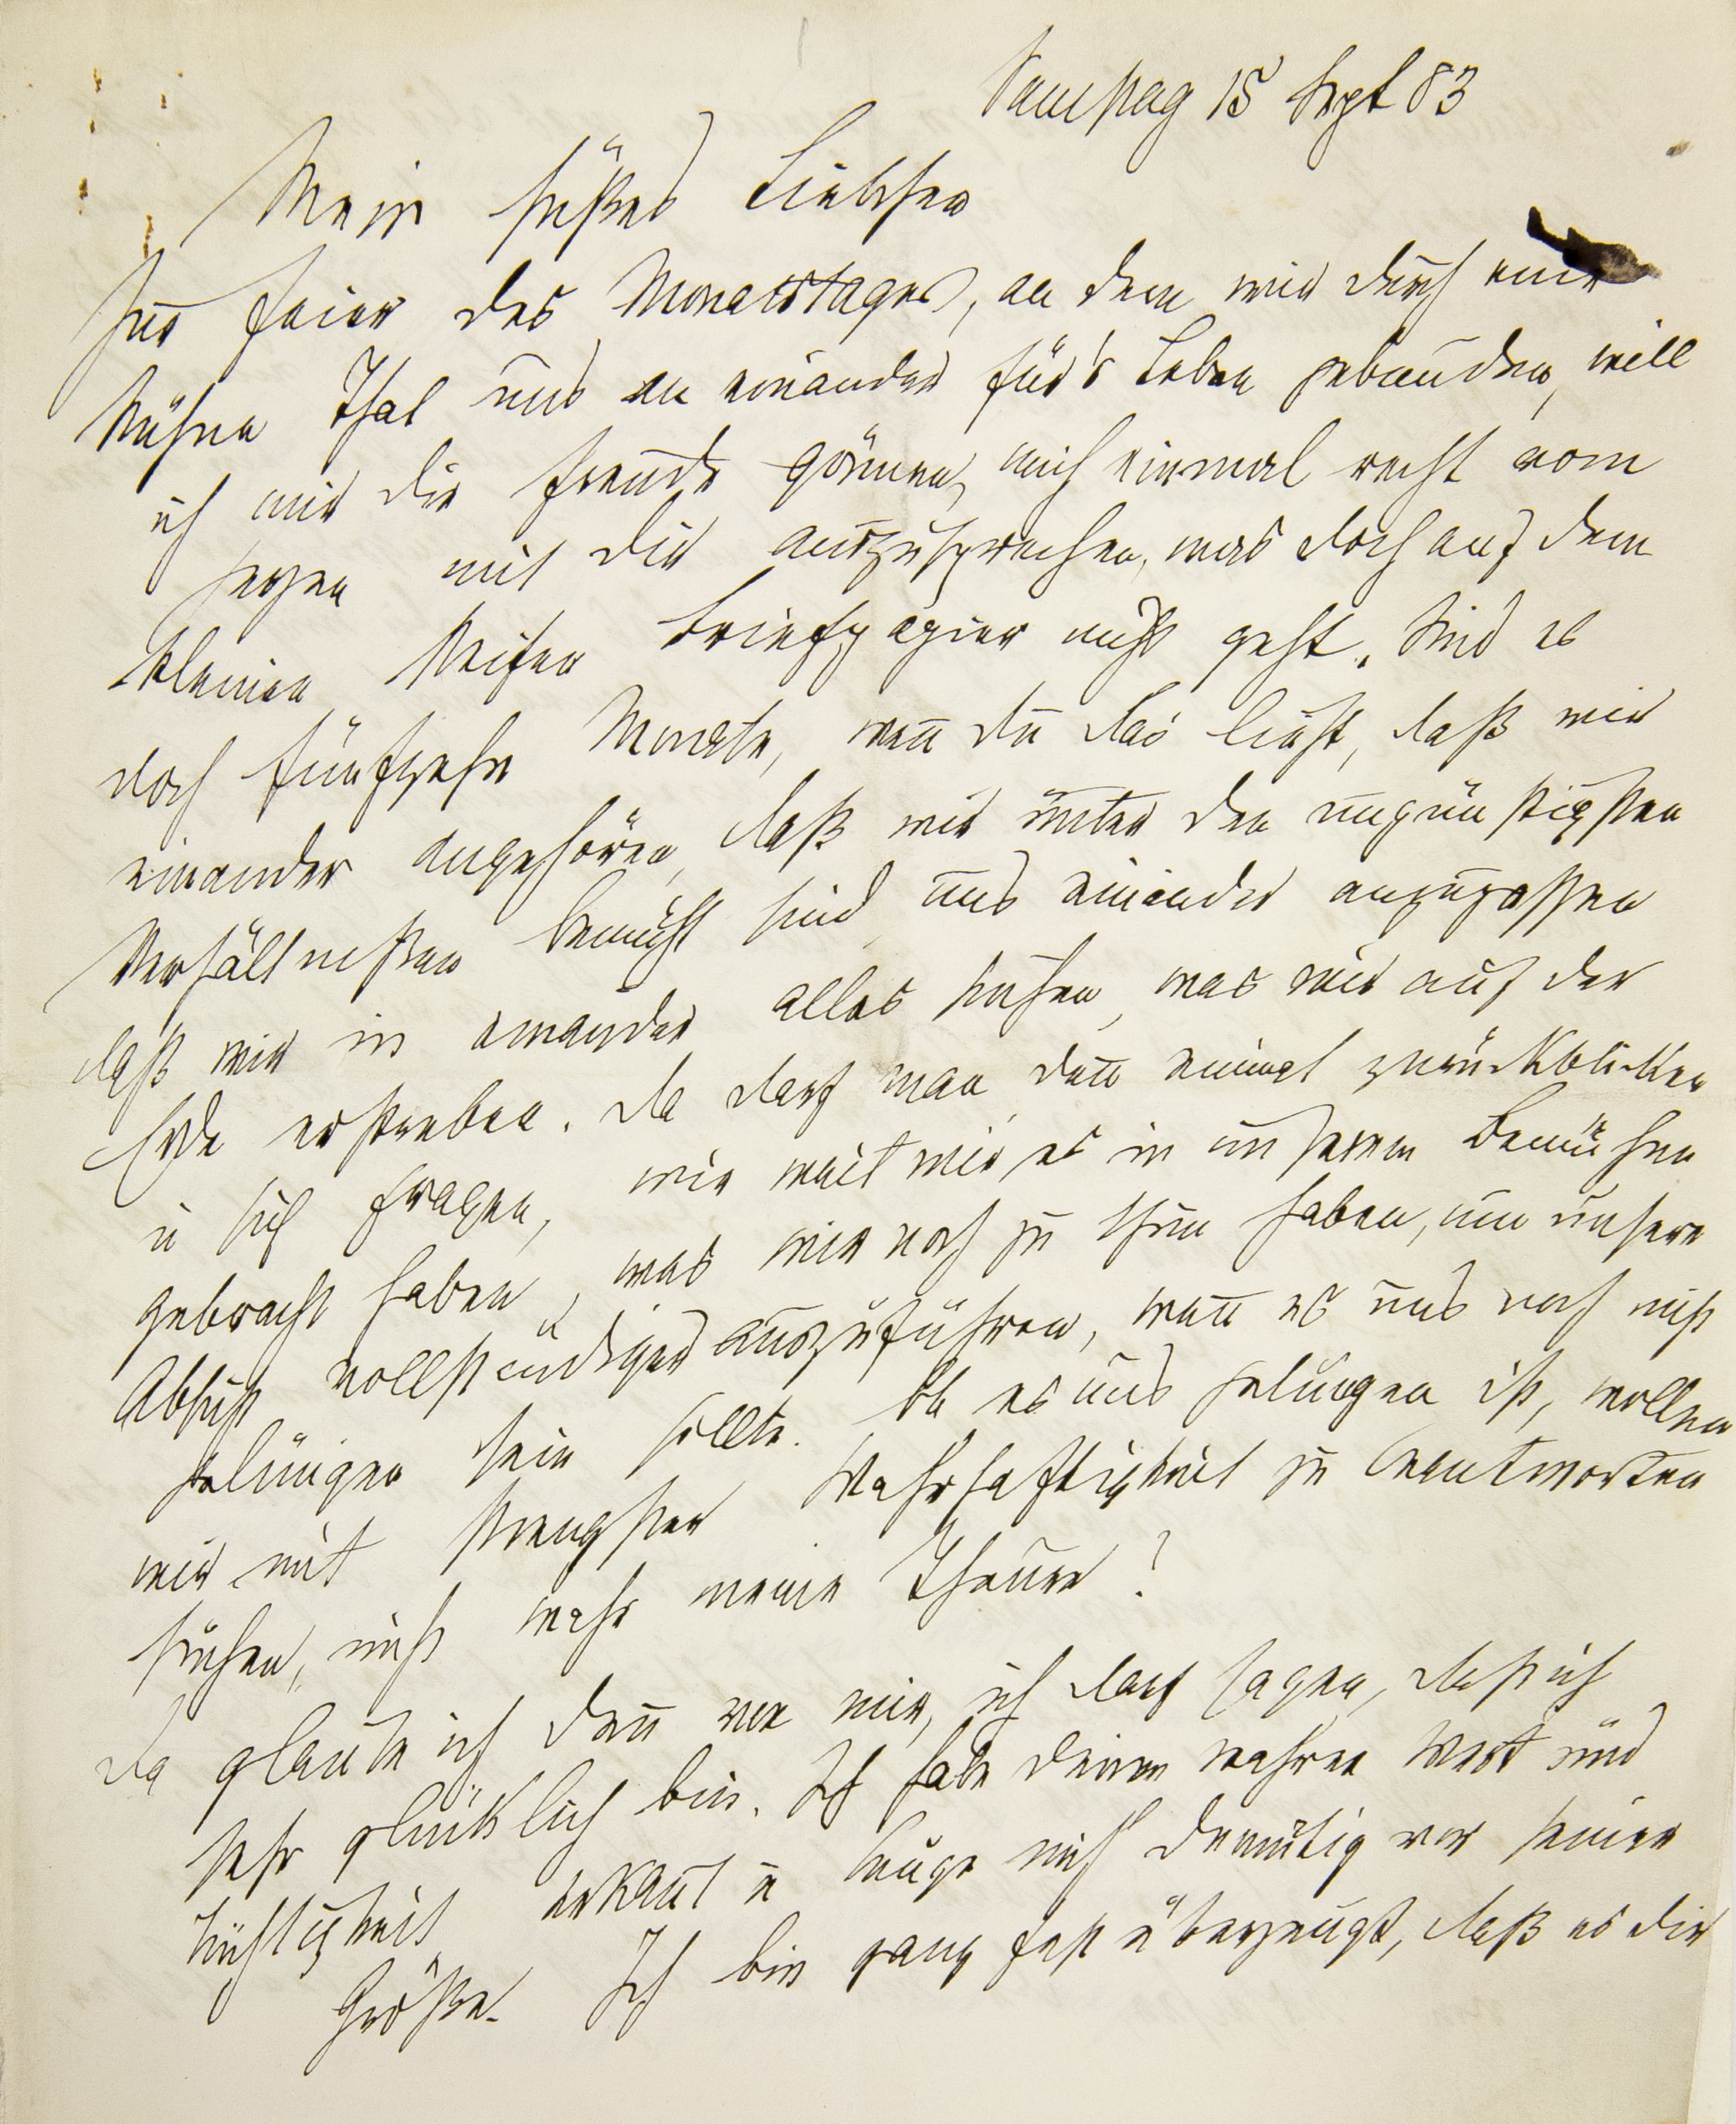 Samstag 15 Sept 83
Mein süßes Liebchen
Zur Feier des Monatstages, an dem wir durch eine
kühne That uns an einander für's Leben gebunden, will
ich mir die Freude gönnen, mich einmal recht vom
Herzen mit dir auszusprechen, was doch auf dem
kleinen steifen Briefpapier nicht geht. Sind es
doch fünfzehn Monate, wen̄ du das liest, daß wir
einander angehören, daß wir unter den ungünstigsten
Verhältnißen bemüht sind, uns einander anzupassen
daß wir in einander alles suchen, was wir auf der
Erde erstreben. Da darf man den̄ einmal zurückblicken
u sich fragen, wie weit wir es in unserem Bemühen
gebracht haben, was wir noch zu thun haben, um unsere
Absicht vollständiger auszuführen, wen̄ es uns noch nicht
gelungen sein sollte. Ob es uns gelungen ist, wollen
wir mit strengster Wahrhaftigkeit zu beantworten
suchen, nicht wahr meine Theure?
Da glaube ich den̄ von mir, ich darf sagen, daß ich
sehr glücklich bin. Ich habe deinen wahren Wert und
Tüchtigkeit erkan̄t u beuge mich demütig vor seiner
Größe. Ich bin ganz fest überzeugt, daß es dir